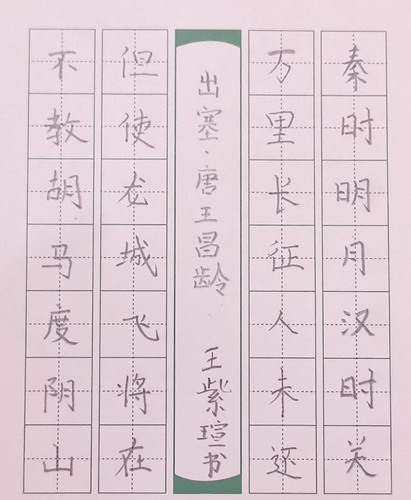 秦时明月汉时关
万里长征人未还
出塞·唐王昌龄 王紫瑄书
但使龙城飞将在
不教胡马度阴山